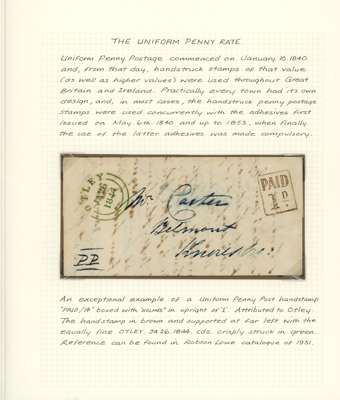 THE UNIFORM PENNY RATE
Uniform Penny Postage commenced on January 10. 1840.
and, from that day, handstruck stamps of that value
(as well as higher values) were used throughout Great
Britain and Ireland. Practically every town had its own
design, and, in most cases, the handstruck penny postage
stamps were used concurrently with the adhesives first
issued on May 6th. 1840 and up to 1853, when finally
the use of the latter adhesives was made compulsory.
OTLEY
1844
PAID
1D
Mr Carter
Belmont
PD
An exceptional example of a Uniform Penny Post handstamp
"PAID/1D" boxed with in upright of '1'. Attributed to Otley.
The handstamp in brown and supported at far left with the
equally fine OTLEY. JA 26. 1844. cds. crisply struck in green.
Reference can be found in Robson Lowe catalogue of 1951.